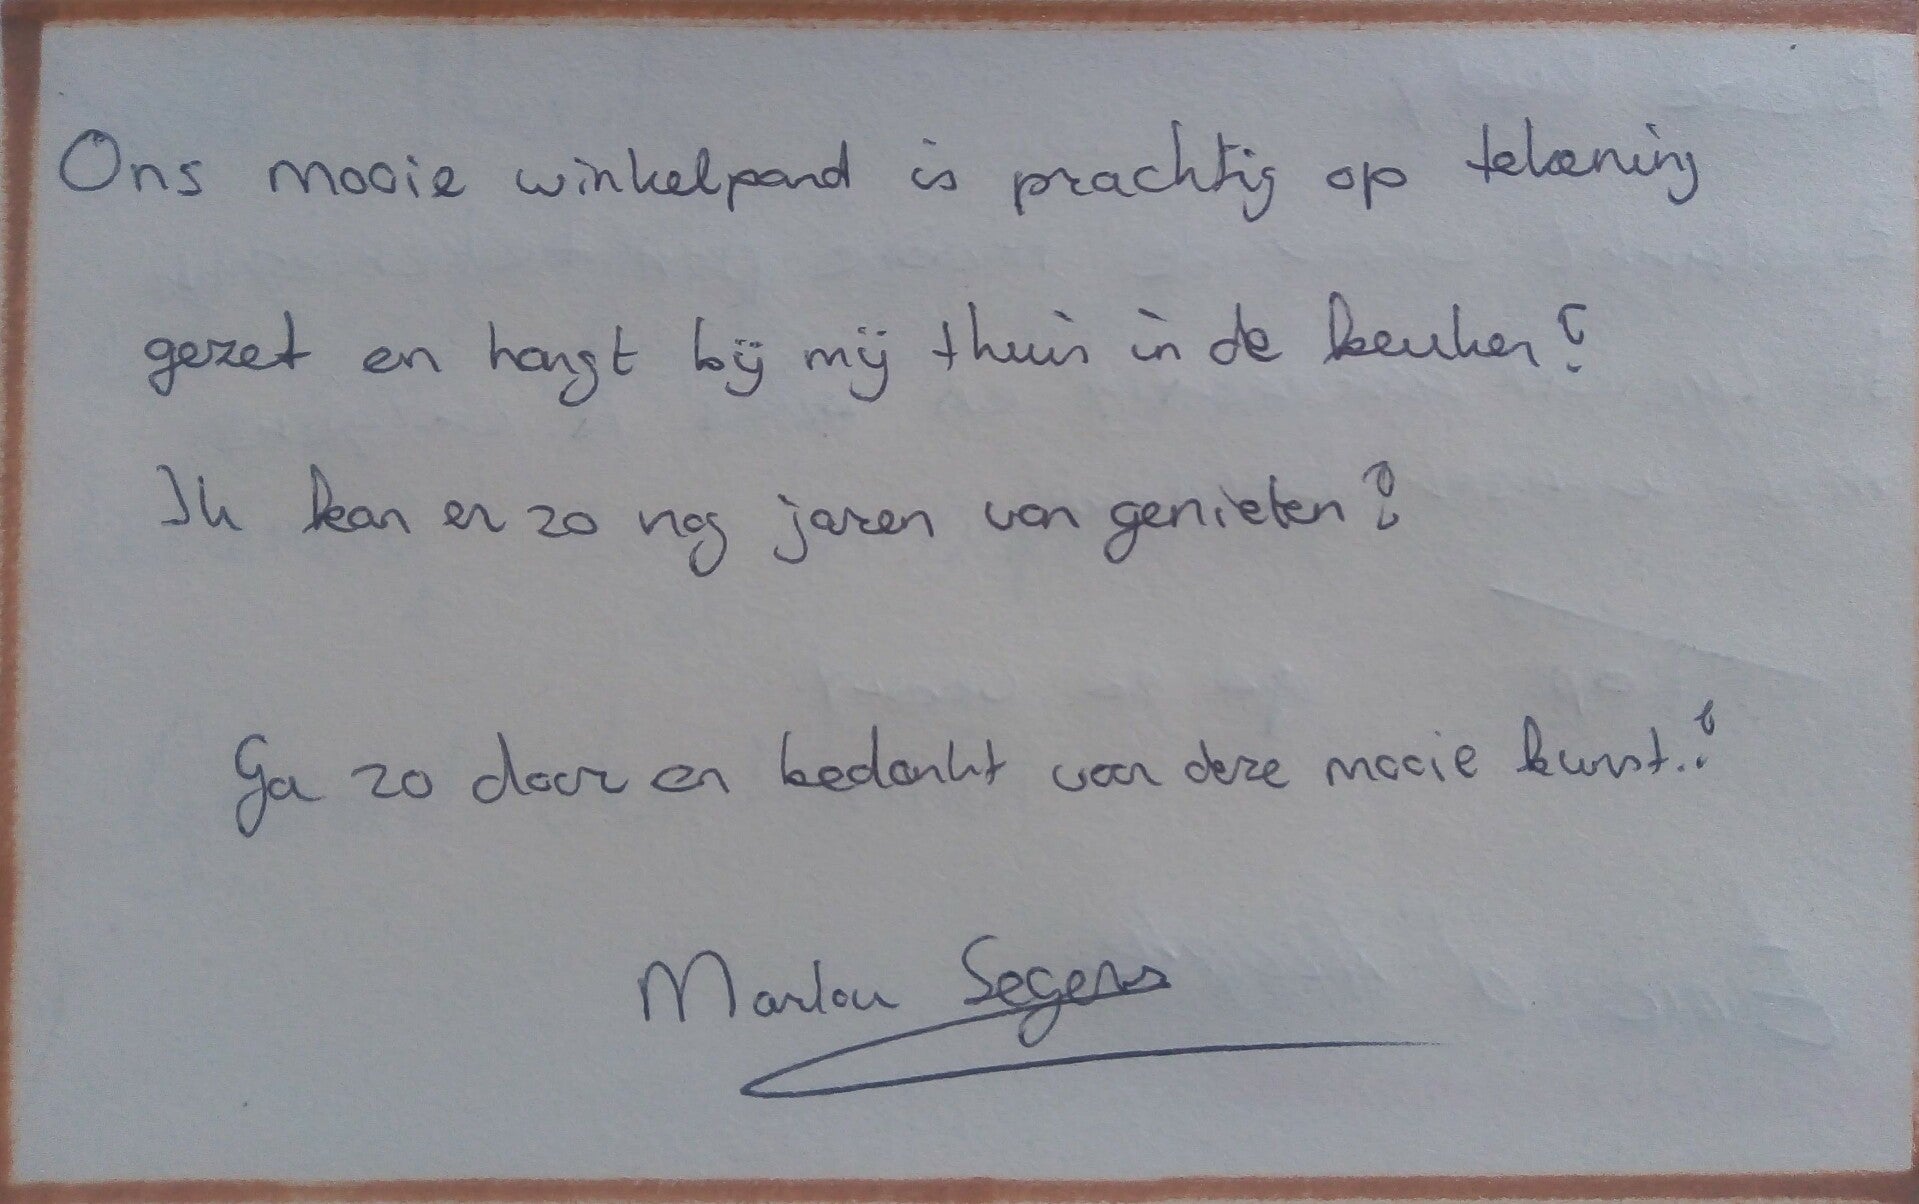 Ons mooie winkelpand is prachtig op tekening
gezet en hangt bij mij thuis in de keuken!
Ik kan er zo nog jaren van genieten!
Ga zo door en bedankt voor deze mooie kunst.!
Marlou Segers